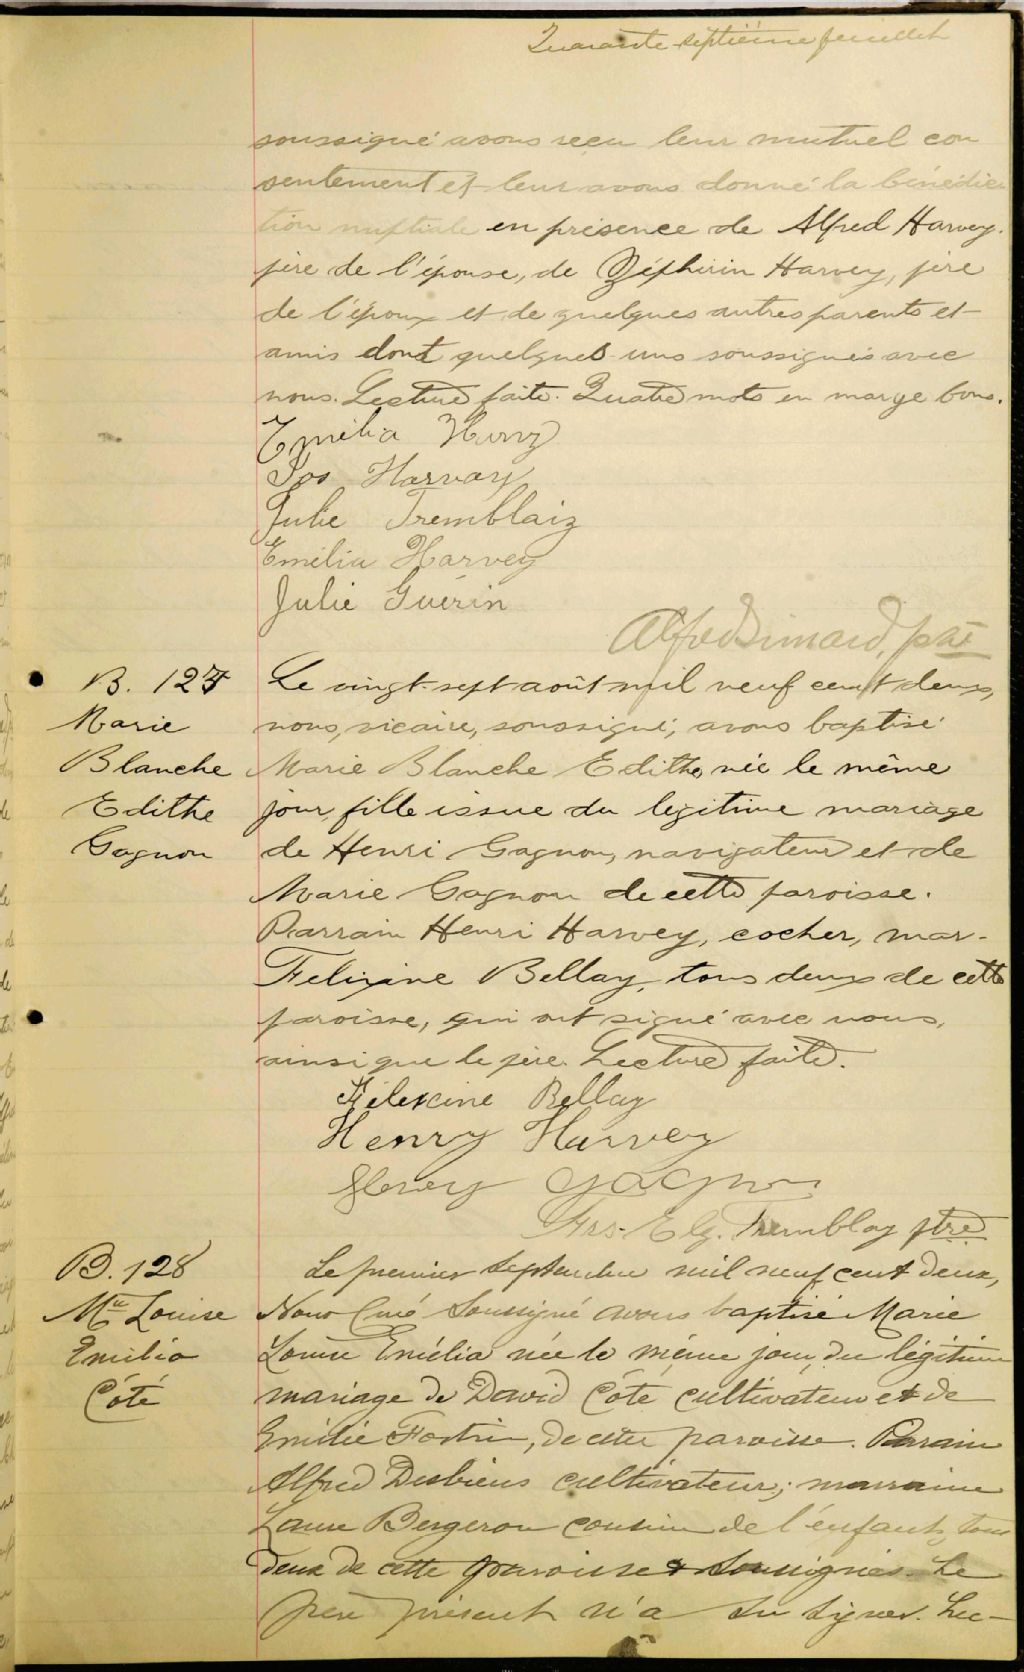 Quarante septième feuillet
soussigné avons reçu leur mutuel con
sentement et leur avons donné la bénédic
tion nuptiale en présence de Alfred Harvey.
père de l'épouse, de Zéphirin Harvey, père
de l'époux et de quelques autres parents et
amis dont quelques uns soussignés avec
nous. Lecture faite. Quatre mots en marge bons.
Emélia
Jos Harvay
Julie Tremblaiz
Emélia Harvey
Julie Guérin
Alfred Simard, ptre
B. 127
Marie
Blanche
Edithe
Gagnon
Le vingt-sept août mil neuf cent deux,
nous, vicaire, soussigné, avons baptisé
Marie Blanche Edithe, née le même
jour, fille issue du légitime mariage
de Henri Gagnon, navigateur et de
Marie Gagnon de cette paroisse.
Parrain Henri Harvey, cocher, mar-
Felixine Bellay, tous deux de cette
paroisse, qui ont signé avec nous,
ainsi que le père. Lecture faite.
Félexine Bellay
Henry Harvey
Henry Gagnon
Frs. Elz. Tremblay ptre
B. 128
Mie Louise
Emilia
Côté
Le premier Septembre mil neuf cent deux,
Nous Curé Soussigné avons baptisé Marie
Louise Emélia née le même jour, du légitime
mariage de David Côté cultivateur et de
Emélie Fortin, de cette paroisse. Parrain
Alfred Desbiens cultivateur; marraine
Laure Bergeron cousine de l'enfant, tous
deux de cette paroisse & Soussignés. Le
père présent n'a su signer. Lec-